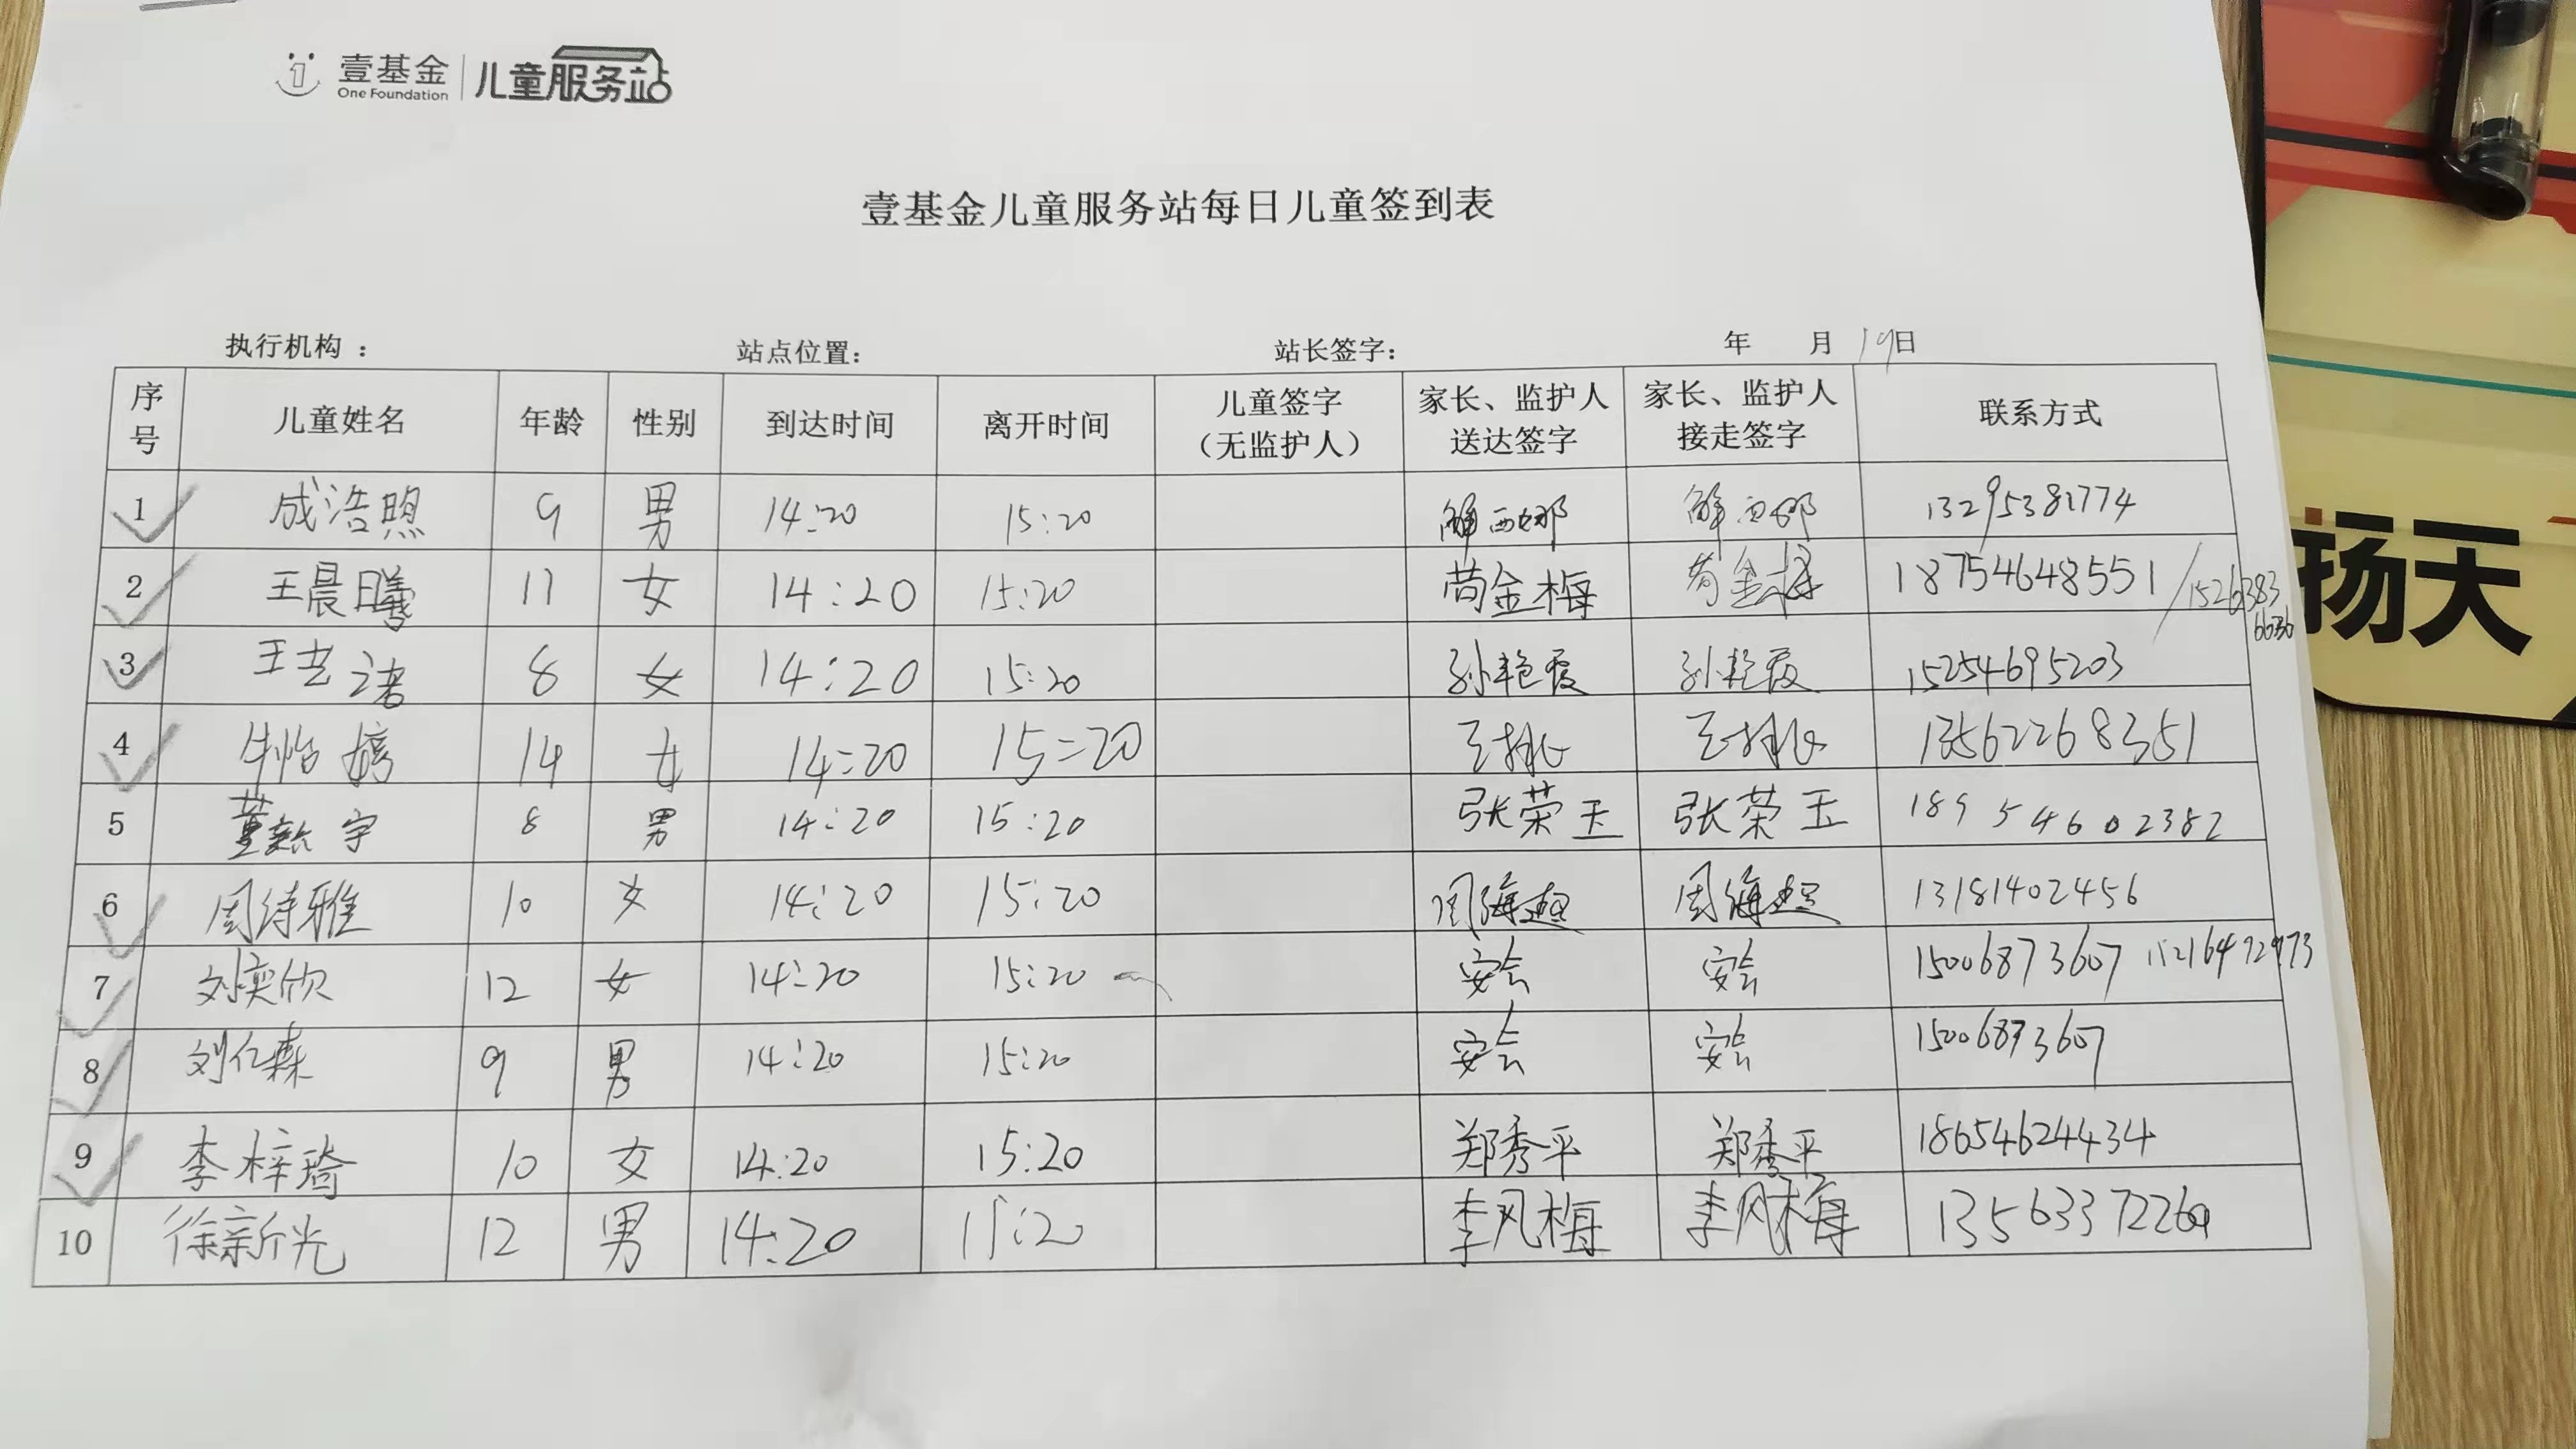 壹基金 儿童服务站
One Foundation
壹基金儿童服务站每日儿童签到表
执行机构： 站点位置： 站长签字： 年 月 19日
序号 儿童姓名 年龄 性别 到达时间 离开时间 儿童签字（无监护人） 家长、监护人送达签字 家长、监护人接走签字 联系方式
1 成浩煦 9 男 14:20 15:20 解西娜 解西娜 13295381774
2 王晨曦 11 女 14:20 15:20 苟金梅 苟金梅 18754648551/15263836630
3 王艺诺 8 女 14:20 15:20 孙艳霞 孙艳霞 15254695203
4 牛怡婷 14 女 14:20 15:20 13562268351
5 董宇 8 男 14:20 15:20 张荣玉 张荣玉 18954602382
6 周诗雅 10 女 14:20 15:20 周海超 周海超 13181402456
7 刘奕欣 12 女 14:20 15:20 安会 安会 15006873607
8 刘亿森 9 男 14:20 15:20 安会 安会 15006873607
9 李梓琦 10 女 14:20 15:20 郑秀平 郑秀平 18654624434
10 徐新光 12 男 14:20 15:20 李风梅 李风梅
扬天